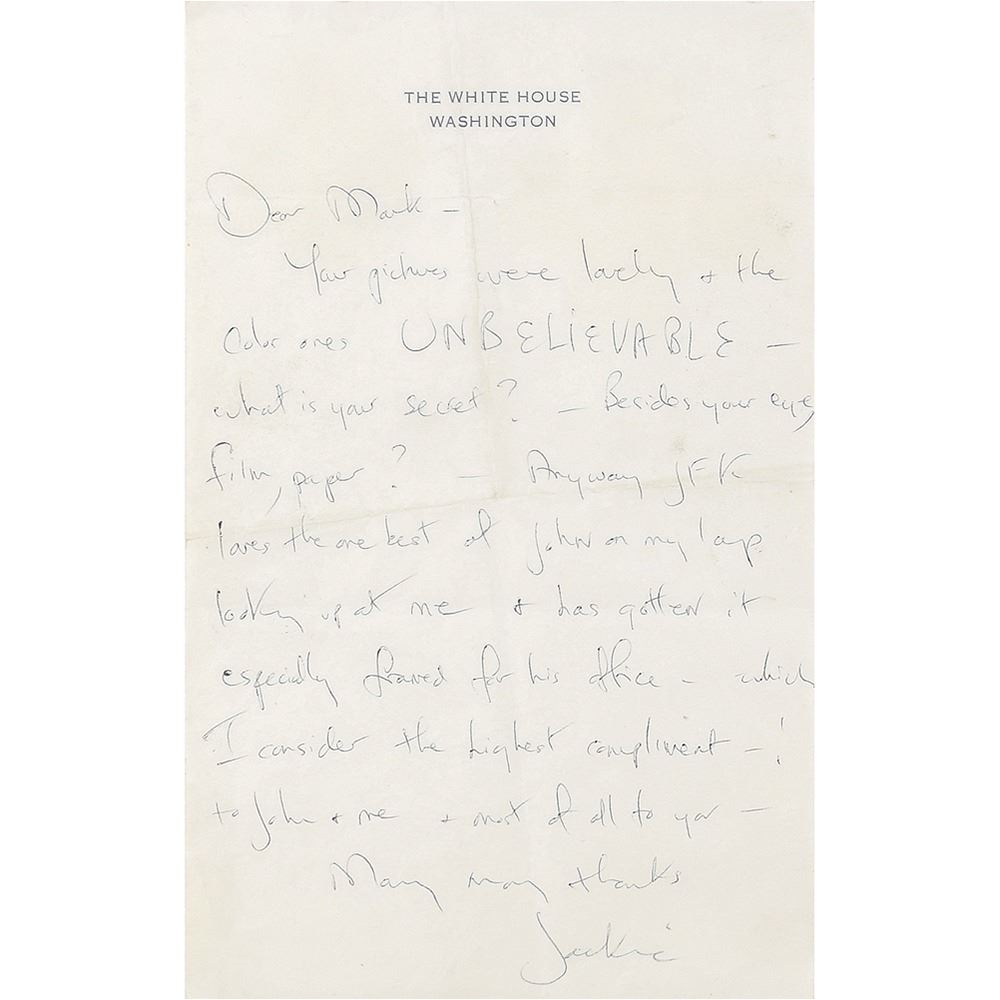 THE WHITE HOUSE
WASHINGTON
Dear Mark —
Your pictures were lovely + the
color ones UNBELIEVABLE —
what is your secret? — Besides your eye,
film, paper? — Anyway JFK
loves the one best of John on my lap
looking up at me + has gotten it
especially framed for his office — which
I consider the highest compliment — !
to John + me + most of all to you —
Many many thanks
Jackie